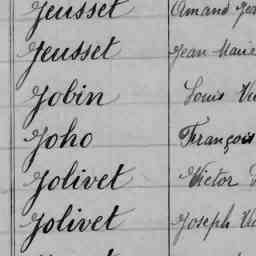 Jeusset Amand
Jeusset Jean Marie
Jobin Louis
Joho François
Jolivet Victor
Jolivet Joseph